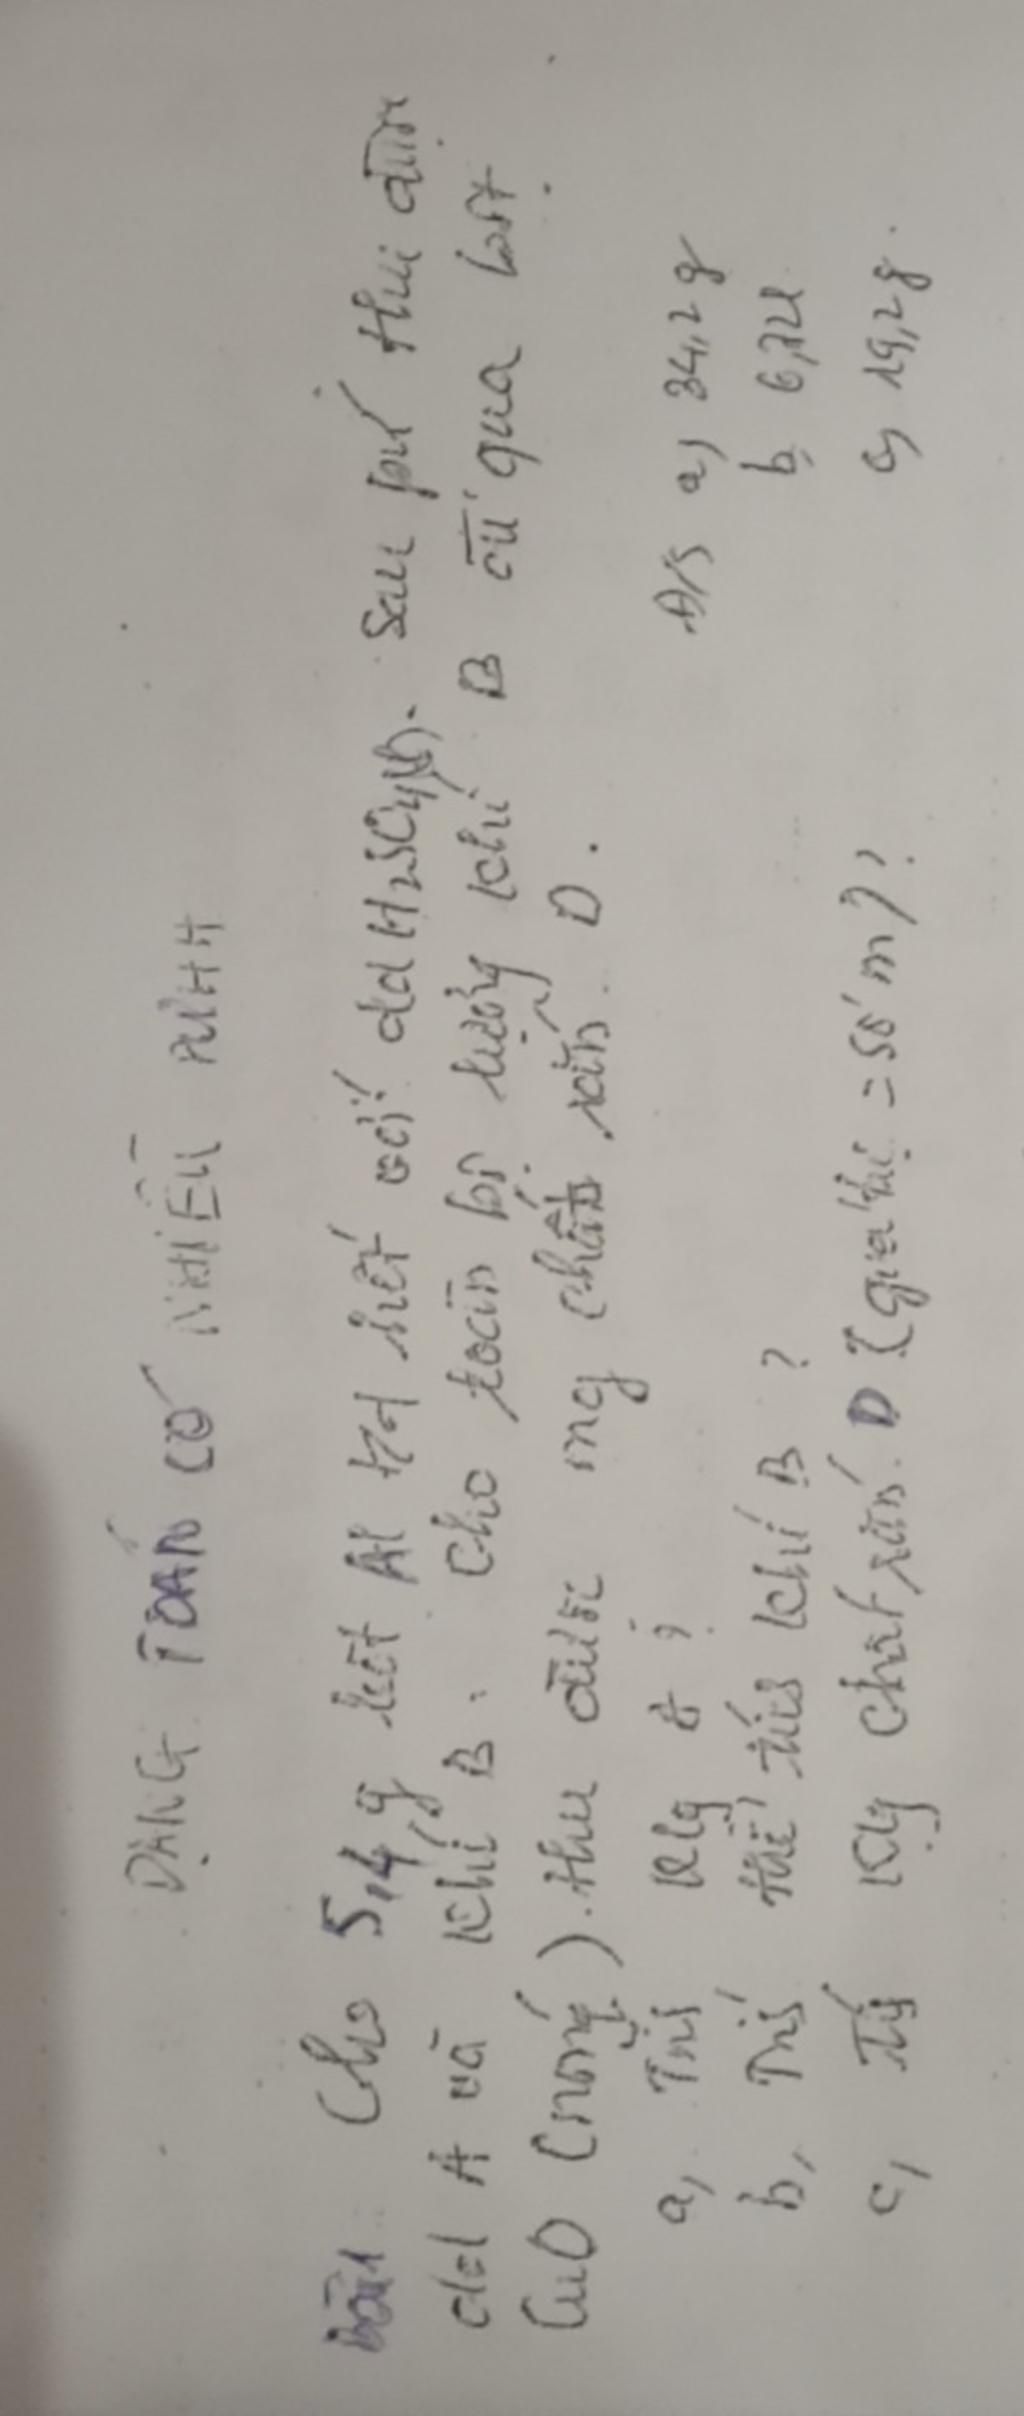 DẠNG TOÁN CÓ NHIỀU PƯHH
Bài 1: Cho 5,4 g bột Al t/d hết với dd H2SO4(l). Sau pư thu được
dd A và khí B. Cho toàn bộ lượng khí B đi qua bột
CuO (nóng). thu được mg chất rắn D.
a, Tính klg A?
b, Tính thể tích khí B?
c, Tính klg chất rắn D (giá trị = số m)?
Đ/S a, 34,2 g
b, 6,72l
c, 19,2g.